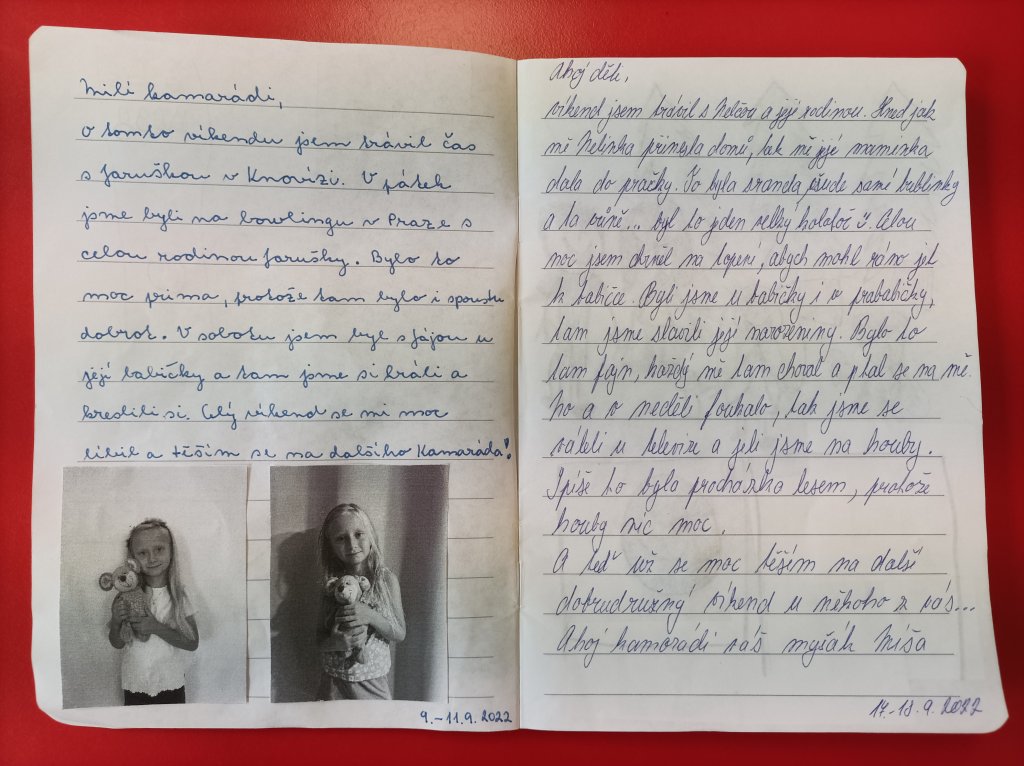 Milí kamarádi,
o tomto víkendu jsem trávil čas
s Jaruškou v Knovízi. V pátek
jsme byli na bowlingu v Praze s
celou rodinou Jarušky. Bylo to
moc príma, protože tam bylo i spoustu
dobrot. V sobotu jsem byl s Jájou u
její babičky a tam jsme si hráli a
kreslili si. Celý víkend se mi moc
líbil a těším se na dalšího Kamaráda!
9.-11.9.2022
Ahoj děti,
víkend jsem trávil s a její rodinou. Hned jak
mě Nelinka přinesla domů, tak mě její maminka
dala do pračky. To byla sranda všude samé bublinky
a ta vůně... byl to jeden velký kolotoč Celou
noc jsem na topení, abych mohl ráno jet
k babičce. Byli jsme u babičky i u prababičky,
tam jsme slavili její narozeniny. Bylo to
tam fajn, každý mě tam choval a ptal se na mě.
No a v neděli foukalo, tak jsme se
váleli u televize a jeli jsme na houby.
Spíše to byla procházka lesem, protože
houby nic moc.
A teď už se moc těším na další
dobrudružný víkend u někoho z vás...
Ahoj kamarádi váš myšák Míša
17.-18.9.2022